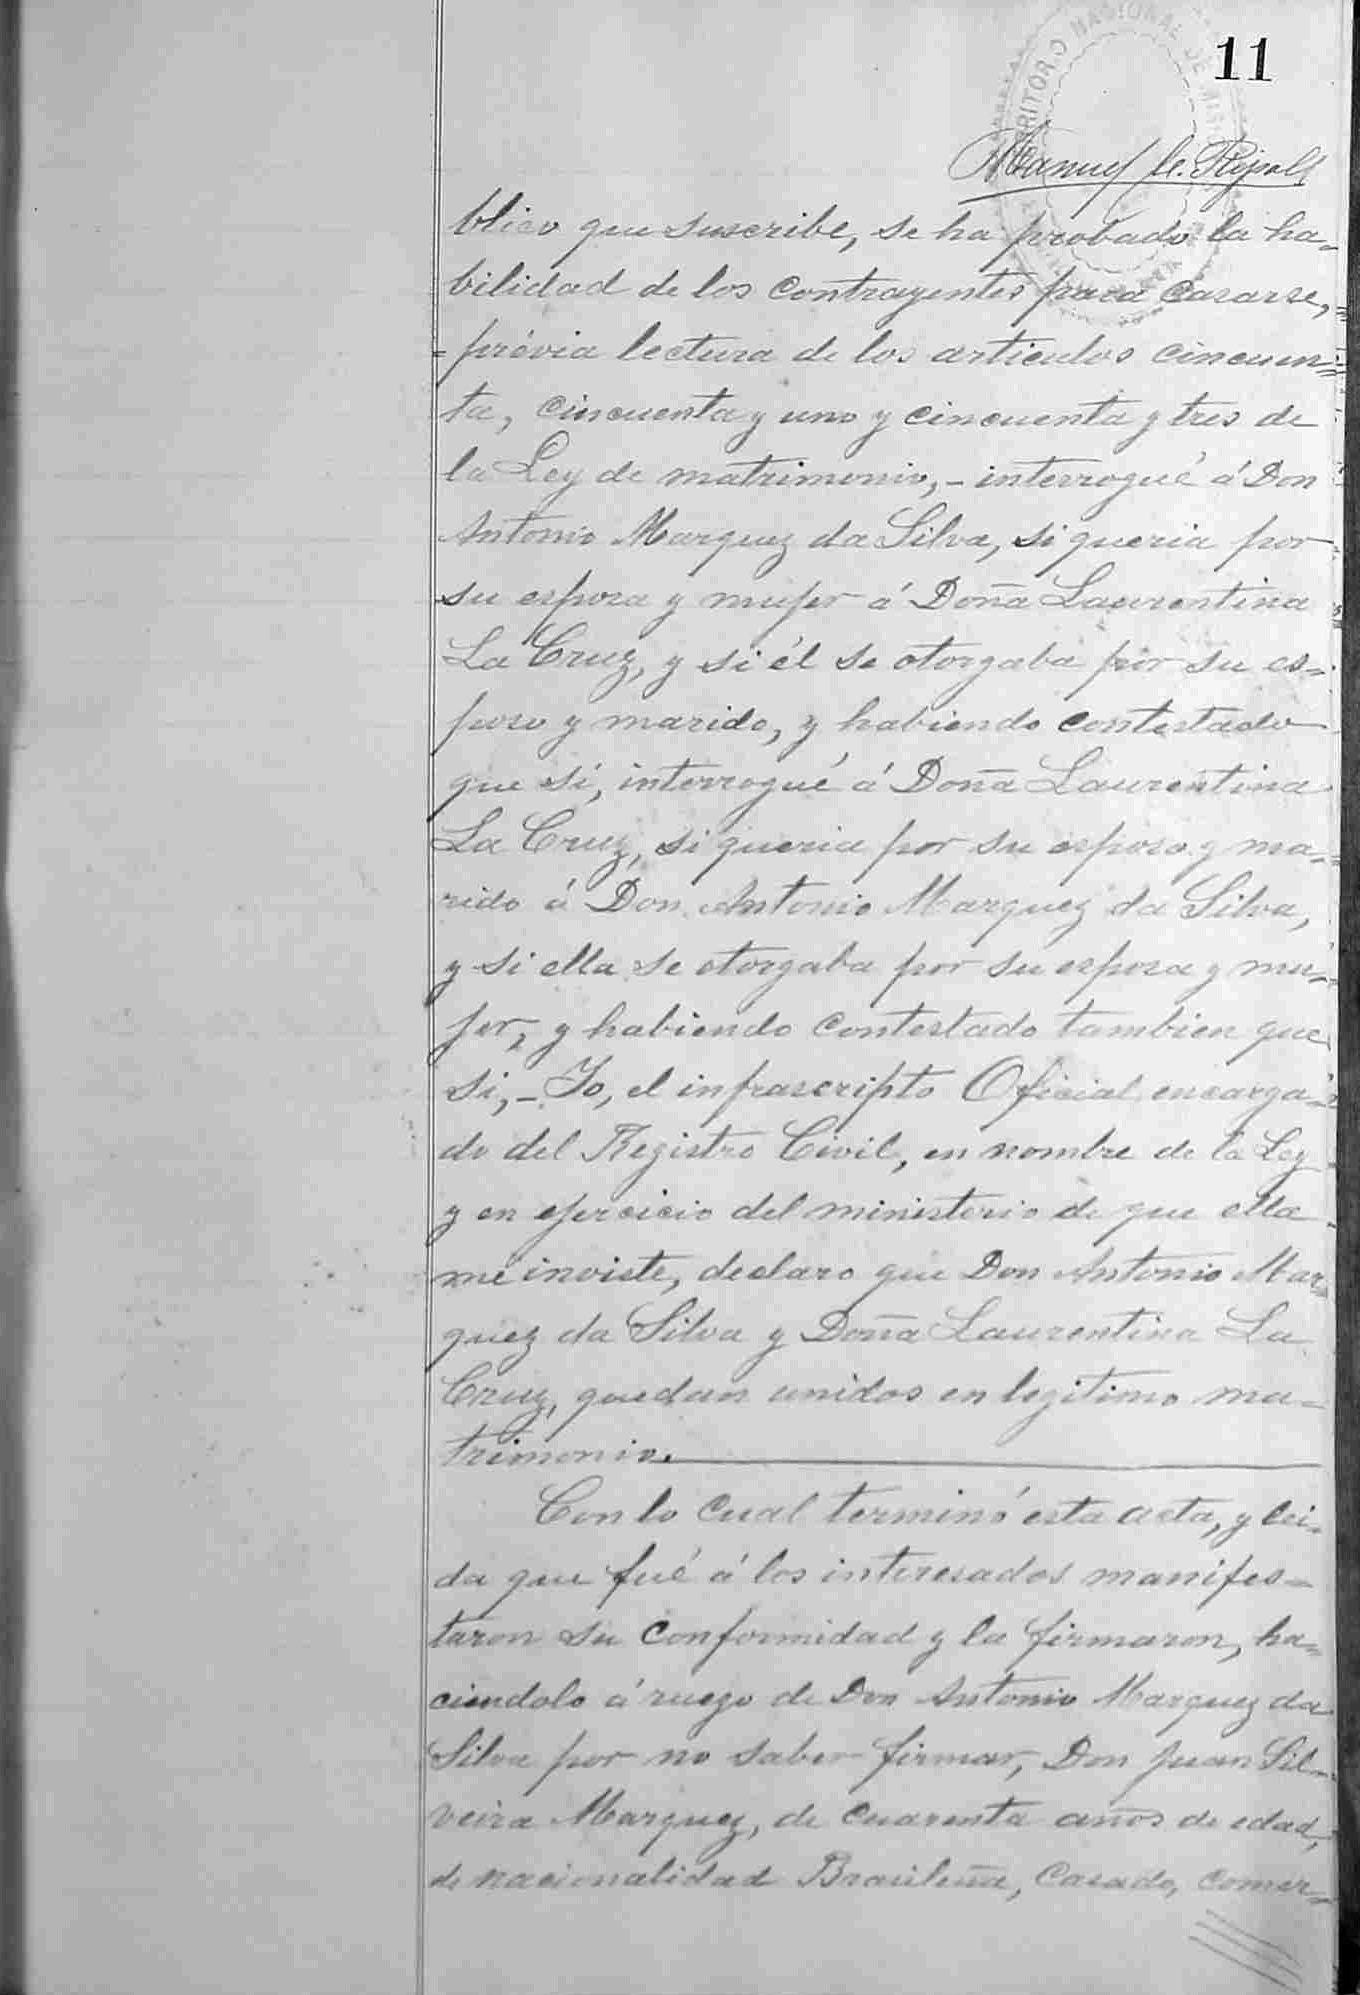 11
TERRITORIO NACIONAL DE
Manuel
blico que suscribe, se ha probado la ha-
bilidad de los contrayentes para casarse,
prévia lectura de los articulos cincuen-
ta, cincuenta y uno y cincuenta y tres de
la Ley de matrimonio,- interrogué á Don
Antonio Marquez da Silva, si queria por
su esposa y mujer á Doña Laurentina
La Cruz, y si él se otorgaba por su es-
poso y marido, y habiendo contestado
que si, interrogué á Doña Laurentina
La Cruz, si queria por su esposo y ma-
rido á Don Antonio Marquez da Silva,
y si ella se otorgaba por su esposa y mu-
jer, y habiendo contestado tambien que
si,- Yo, el infrascripto Oficial encarga-
do del Registro Civil, en nombre de la Ley
y en ejercicio del ministerio de que ella
me inviste, declaro que Don Antonio Mar-
quez da Silva y Doña Laurentina La
Cruz, quedan unidos en legitimo ma-
trimonio.
Con lo cual terminó esta acta, y lei-
da que fué á los interesados manifes-
taron su conformidad y la firmaron, ha-
ciendolo á ruego de Don Antonio Marquez da
Silva por no saber firmar, Don Juan Sil-
veira Marquez, de cuarenta años de edad,
de nacionalidad Brasileña, casado, comer-